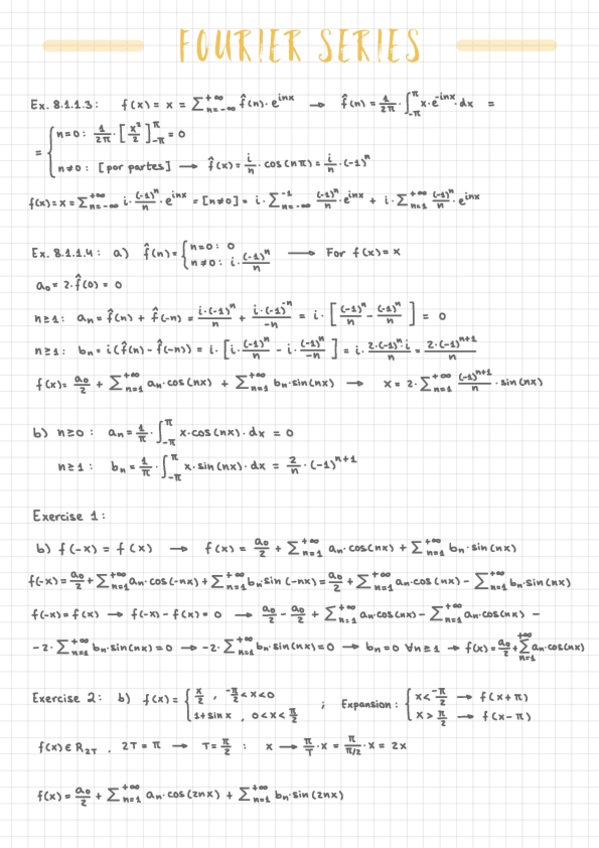 FOURIER SERIES
Ex. 8.1.1.3: f(x) = x = ∑_{n=-∞}^{+∞} f̂(n)·e^{inx} → f̂(n) = 1/2π · ∫_{-π}^{π} x·e^{-inx}·dx =
= { n=0: 1/2π · [x²/2]_{-π}^{π} = 0
n≠0: [por partes] → f̂(x) = i/n · cos(nπ) = i/n · (-1)^n
f(x) = x = ∑_{n=-∞}^{+∞} i·(-1)^n/n · e^{inx} = [n≠0] = i·∑_{n=-∞}^{-1} (-1)^n/n · e^{inx} + i·∑_{n=1}^{+∞} (-1)^n/n · e^{inx}
Ex. 8.1.1.4: a) f̂(n) = { n=0: 0 
n≠0: i·(-1)^n/n → For f(x) = x
a₀ = 2·f̂(0) = 0
n≥1: aₙ = f̂(n) + f̂(-n) = i·(-1)^n/n + i·(-1)^{-n}/-n = i·[(-1)^n/n - (-1)^n/n] = 0
n≥1: bₙ = i(f̂(n) - f̂(-n)) = i·[i·(-1)^n/n - i·(-1)^{-n}/-n] = i·2·(-1)^n·i/n = 2·(-1)^{n+1}/n
f(x) = a₀/2 + ∑_{n=1}^{+∞} aₙ·cos(nx) + ∑_{n=1}^{+∞} bₙ·sin(nx) → x = 2·∑_{n=1}^{+∞} (-1)^{n+1}/n · sin(nx)
b) n≥0: aₙ = 1/π · ∫_{-π}^{π} x·cos(nx)·dx = 0
n≥1: bₙ = 1/π · ∫_{-π}^{π} x·sin(nx)·dx = 2/n · (-1)^{n+1}
Exercise 1:
b) f(-x) = f(x) → f(x) = a₀/2 + ∑_{n=1}^{+∞} aₙ·cos(nx) + ∑_{n=1}^{+∞} bₙ·sin(nx)
f(-x) = a₀/2 + ∑_{n=1}^{+∞} aₙ·cos(-nx) + ∑_{n=1}^{+∞} bₙ·sin(-nx) = a₀/2 + ∑_{n=1}^{+∞} aₙ·cos(nx) - ∑_{n=1}^{+∞} bₙ·sin(nx)
f(-x) = f(x) → f(-x) - f(x) = 0 → a₀/2 - a₀/2 + ∑_{n=1}^{+∞} aₙ·cos(nx) - ∑_{n=1}^{+∞} aₙ·cos(nx) -
-2·∑_{n=1}^{+∞} bₙ·sin(nx) = 0 → -2·∑_{n=1}^{+∞} bₙ·sin(nx) = 0 → bₙ = 0 ∀n≥1 → f(x) = a₀/2 + ∑_{n=1}^{+∞} aₙ·cos(nx)
Exercise 2: b) f(x) = { x/2 , -π/2 < x < 0 ; Expansion: { x < -π/2 → f(x+π)
1+sinx , 0 < x < π/2 x > π/2 → f(x-π)
f(x) ∈ R_{2T} , 2T = π → T = π/2 : x → π/T · x = π/(π/2) · x = 2x
f(x) = a₀/2 + ∑_{n=1}^{+∞} aₙ·cos(2nx) + ∑_{n=1}^{+∞} bₙ·sin(2nx)